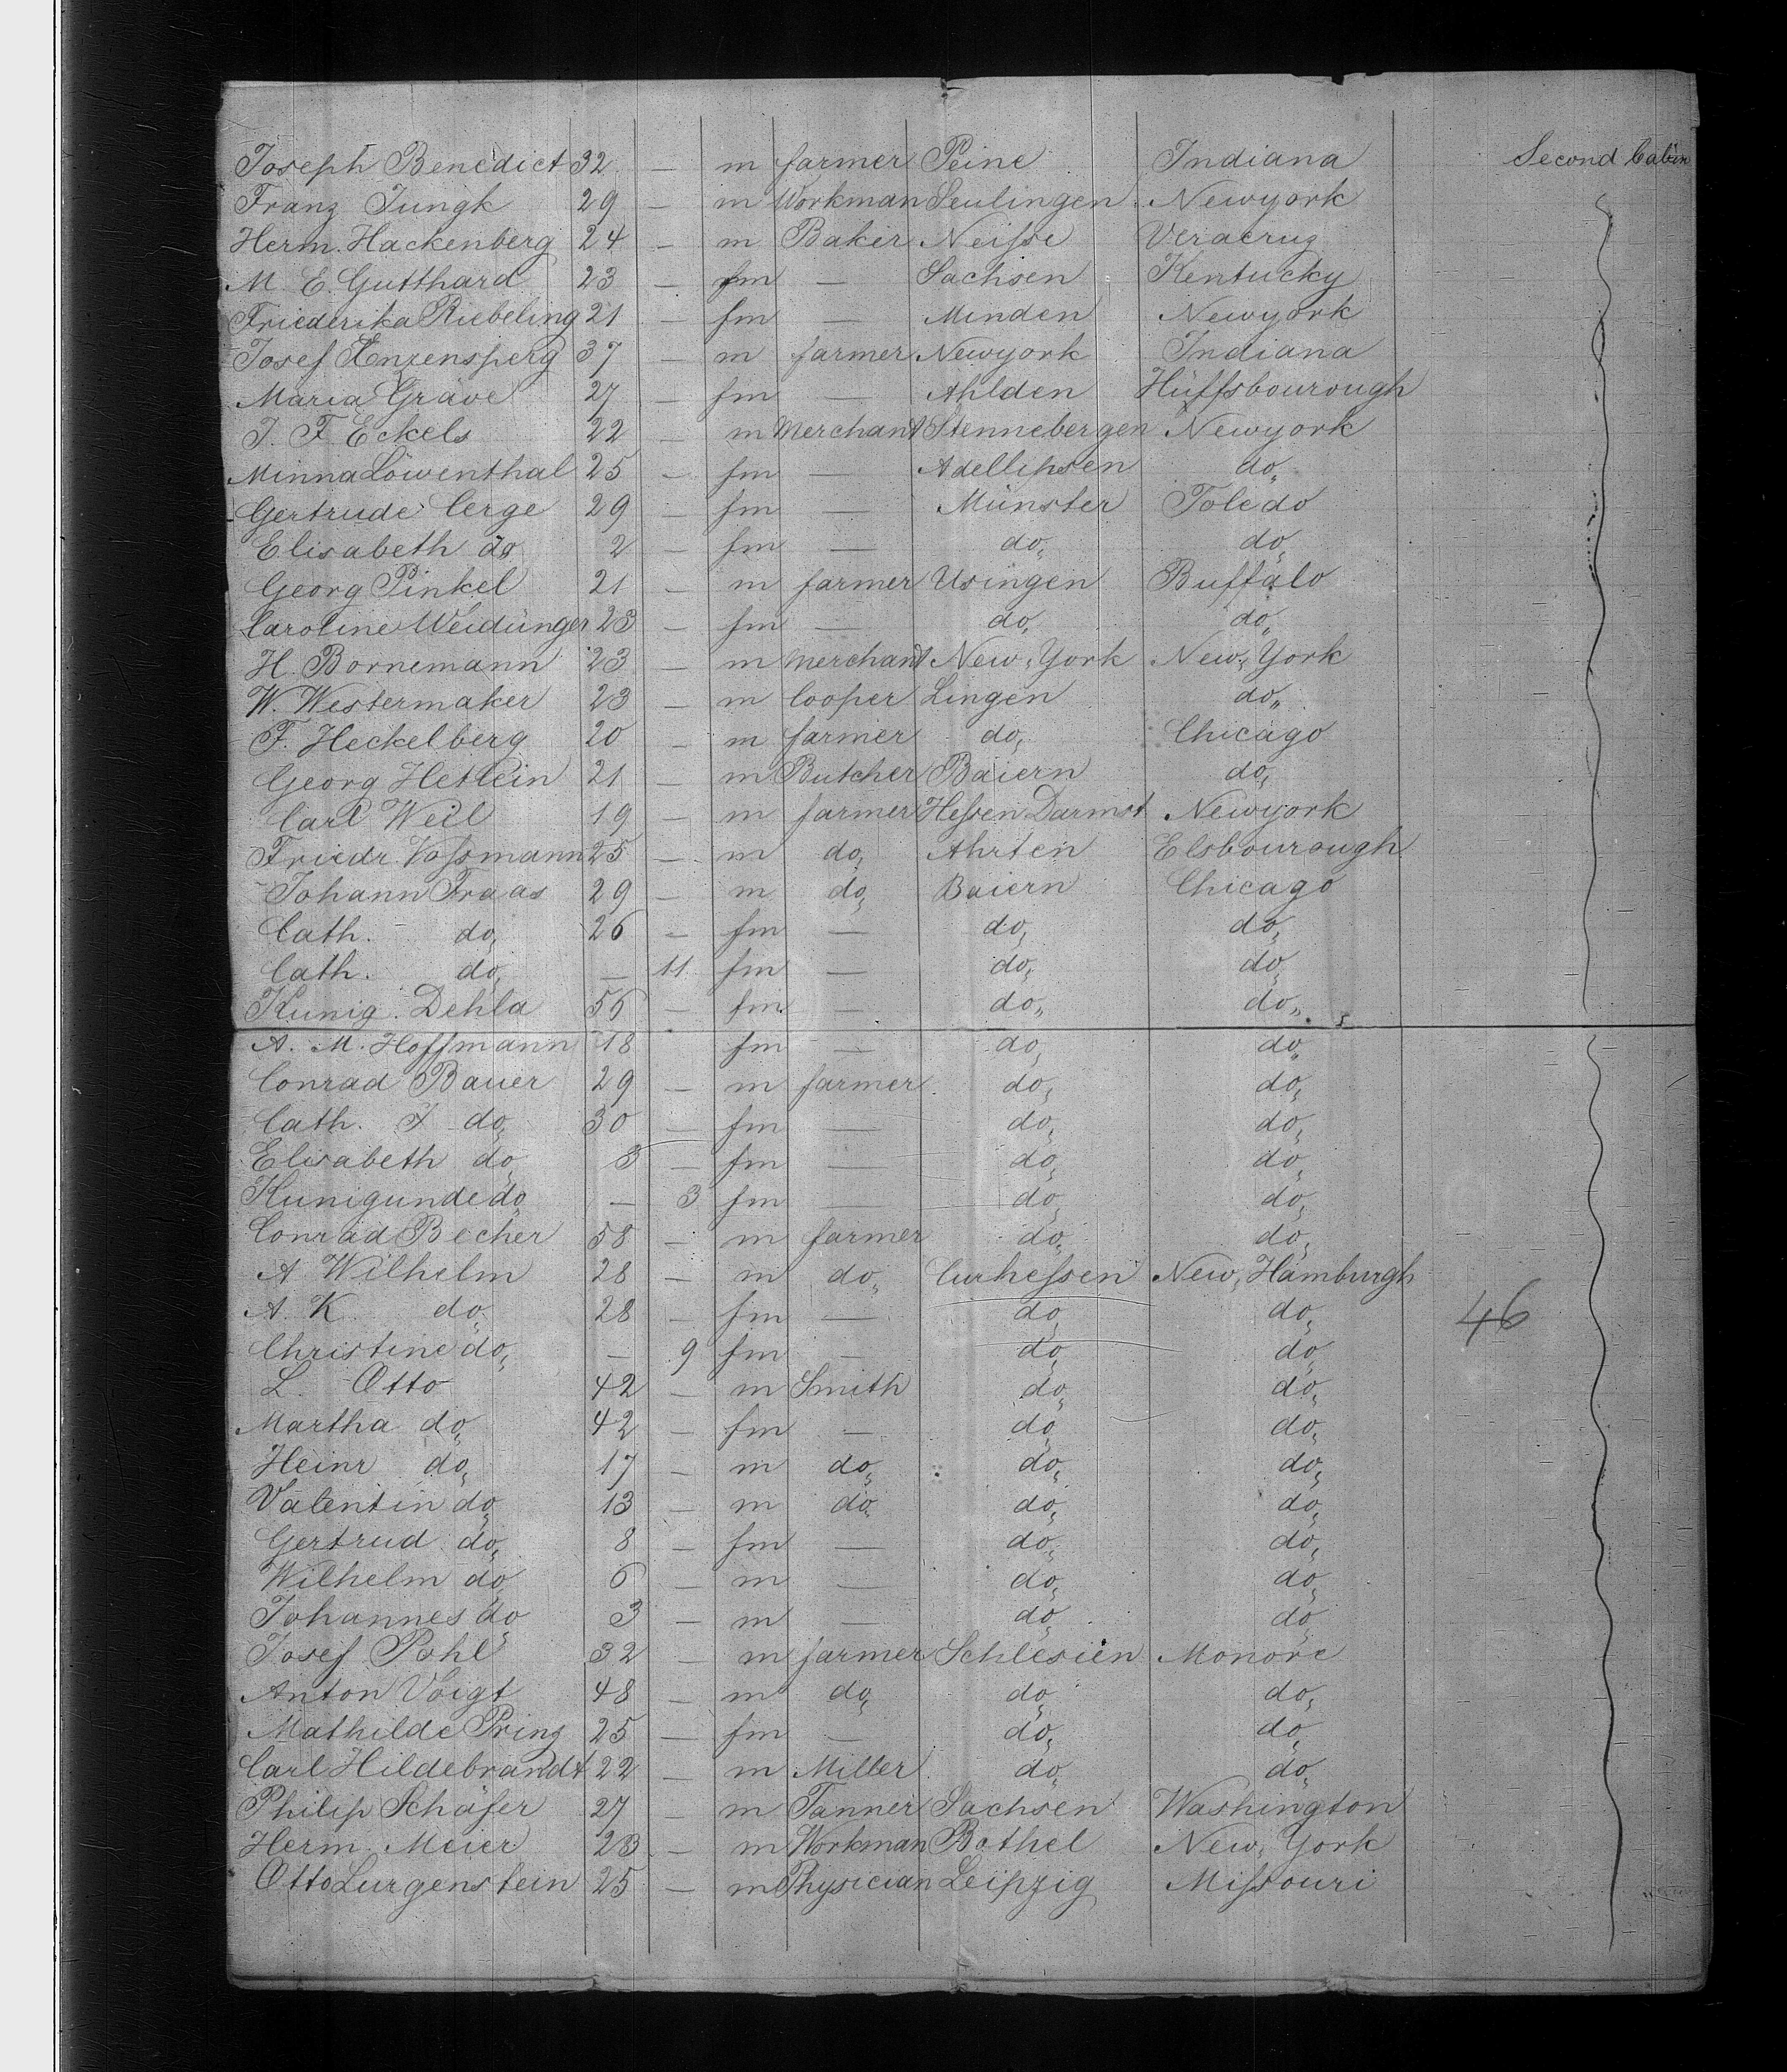 Joseph Benedict 32 — m farmer Peine Indiana Second Cabin
Franz Jungk 29 — m Workman Seulingen Newyork
Herm. Hackenberg 24 — m Baker Neisse Veracruz
M. E. Gutthard 23 — fm — Sachsen Kentucky
Friederika Riebeling 21 — fm — Minden Newyork
Josef Enzensperg 37 — m farmer Newyork Indiana
Maria Gräve 27 — fm — Ahlden Hüffsbourough
J. F. Eckels 22 — m Merchant Stennebergen Newyork
Minna Löwenthal 25 — fm — Adellipsen do„
Gertrude Cerge 29 — fm — Münster Toledo
Elisabeth do 2 — fm — do„ do„
Georg Pinkel 21 — m farmer Usingen Buffalo
Caroline Weidünger 23 — fm — do„ do„
H. Bornemann 23 — m Merchant New„York New„York
W. Westermaker 23 — m Cooper Lingen do„
F. Heckelberg 20 — m farmer do„ Chicago
Georg Hetlein 21 — m Butcher Baiern do„
Carl Weil 19 — m farmer Hessen Darmst Newyork
Friedr. Vossmann 25 — m do„ Ahrten Elsbourough
Johann Fraas 29 — m do„ Baiern Chicago
Cath. do„ 26 — fm — do„ do„
Cath. do„ — 11 fm — do„ do„
Kunig. Dehla 56 — fm — do„ do„
A. M. Hoffmann 18 fm — do„ do„
Conrad Bauer 29 — m farmer do„ do„
Cath. do„ 30 — fm — do„ do„
Elisabeth do„ 3 — fm — do„ do„
Kunigunde do„ — 3 fm — do„ do„
Conrad Becher 58 — m farmer do„ do„
A. Wilhelm 28 — m do„ Curhessen New„Hamburgh
A. K. do„ 28 — fm — do„ do„ 46
Christine do„ — 9 fm — do„ do„
L. Otto 42 — m Smith do„ do„
Martha do„ 42 — fm — do„ do„
Heinr do„ 17 — m do„ do„ do„
Valentin do„ 13 — m do„ do„ do„
Gertrud do„ 8 — fm — do„ do„
Wilhelm do„ 6 — m — do„ do„
Johannes do„ 3 — m — do„ do„
Josef Pohl 32 — m farmer Schlesien Monore
Anton Voigt 48 — m do„ do„ do„
Mathilde Prinz 25 — fm — do„ do„
Carl Hildebrandt 22 — m Miller do„ do„
Philip Schäfer 27 — m Tanner Sachsen Washington
Herm. Meier 23 — m Workman Bothel New„York
Otto Lurgenstein 25 — m Physician Leipzig Missouri